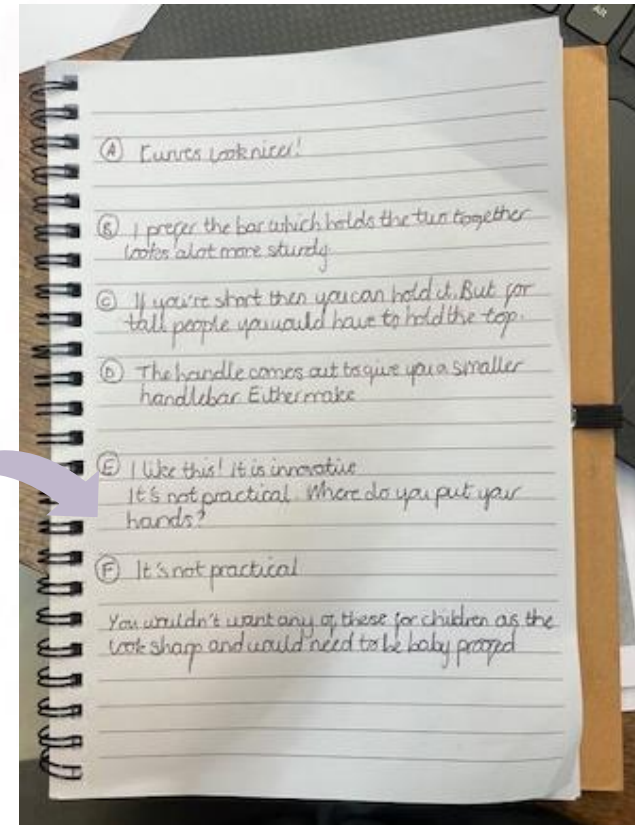 Alt
Ⓐ Curves look nicer!
Ⓑ I prefer the bar which holds the two together
looks alot more sturdy
Ⓒ If you're short then you can hold it. But for
tall people you would have to hold the top.
Ⓓ The handle comes out to give you a smaller
handlebar. Either make
Ⓔ I like this! It is innovative
It's not practical. Where do you put your
hands?
Ⓕ It's not practical
You wouldn't want any of these for children as the
look sharp and would need to be baby proofed